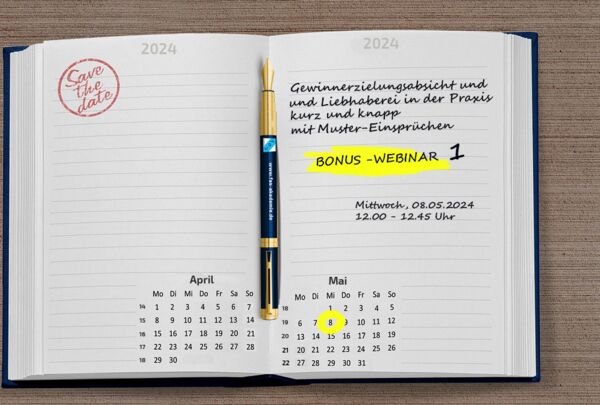 2024
Save
the
date
April
Mo Di Mi Do Fr Sa So
14 1 2 3 4 5 6 7
15 8 9 10 11 12 13 14
16 15 16 17 18 19 20 21
17 22 23 24 25 26 27 28
18 29 30
www.fas-akademie.de
2024
Gewinnerzielungsabsicht und
und Liebhaberei in der Praxis
kurz und knapp
mit Muster-Einsprüchen
BONUS -WEBINAR 1
Mittwoch, 08.05.2024
12.00 - 12.45 Uhr
Mai
Mo Di Mi Do Fr Sa So
18 1 2 3 4 5
19 6 7 8 9 10 11 12
20 13 14 15 16 17 18 19
21 20 21 22 23 24 25 26
22 27 28 29 30 31